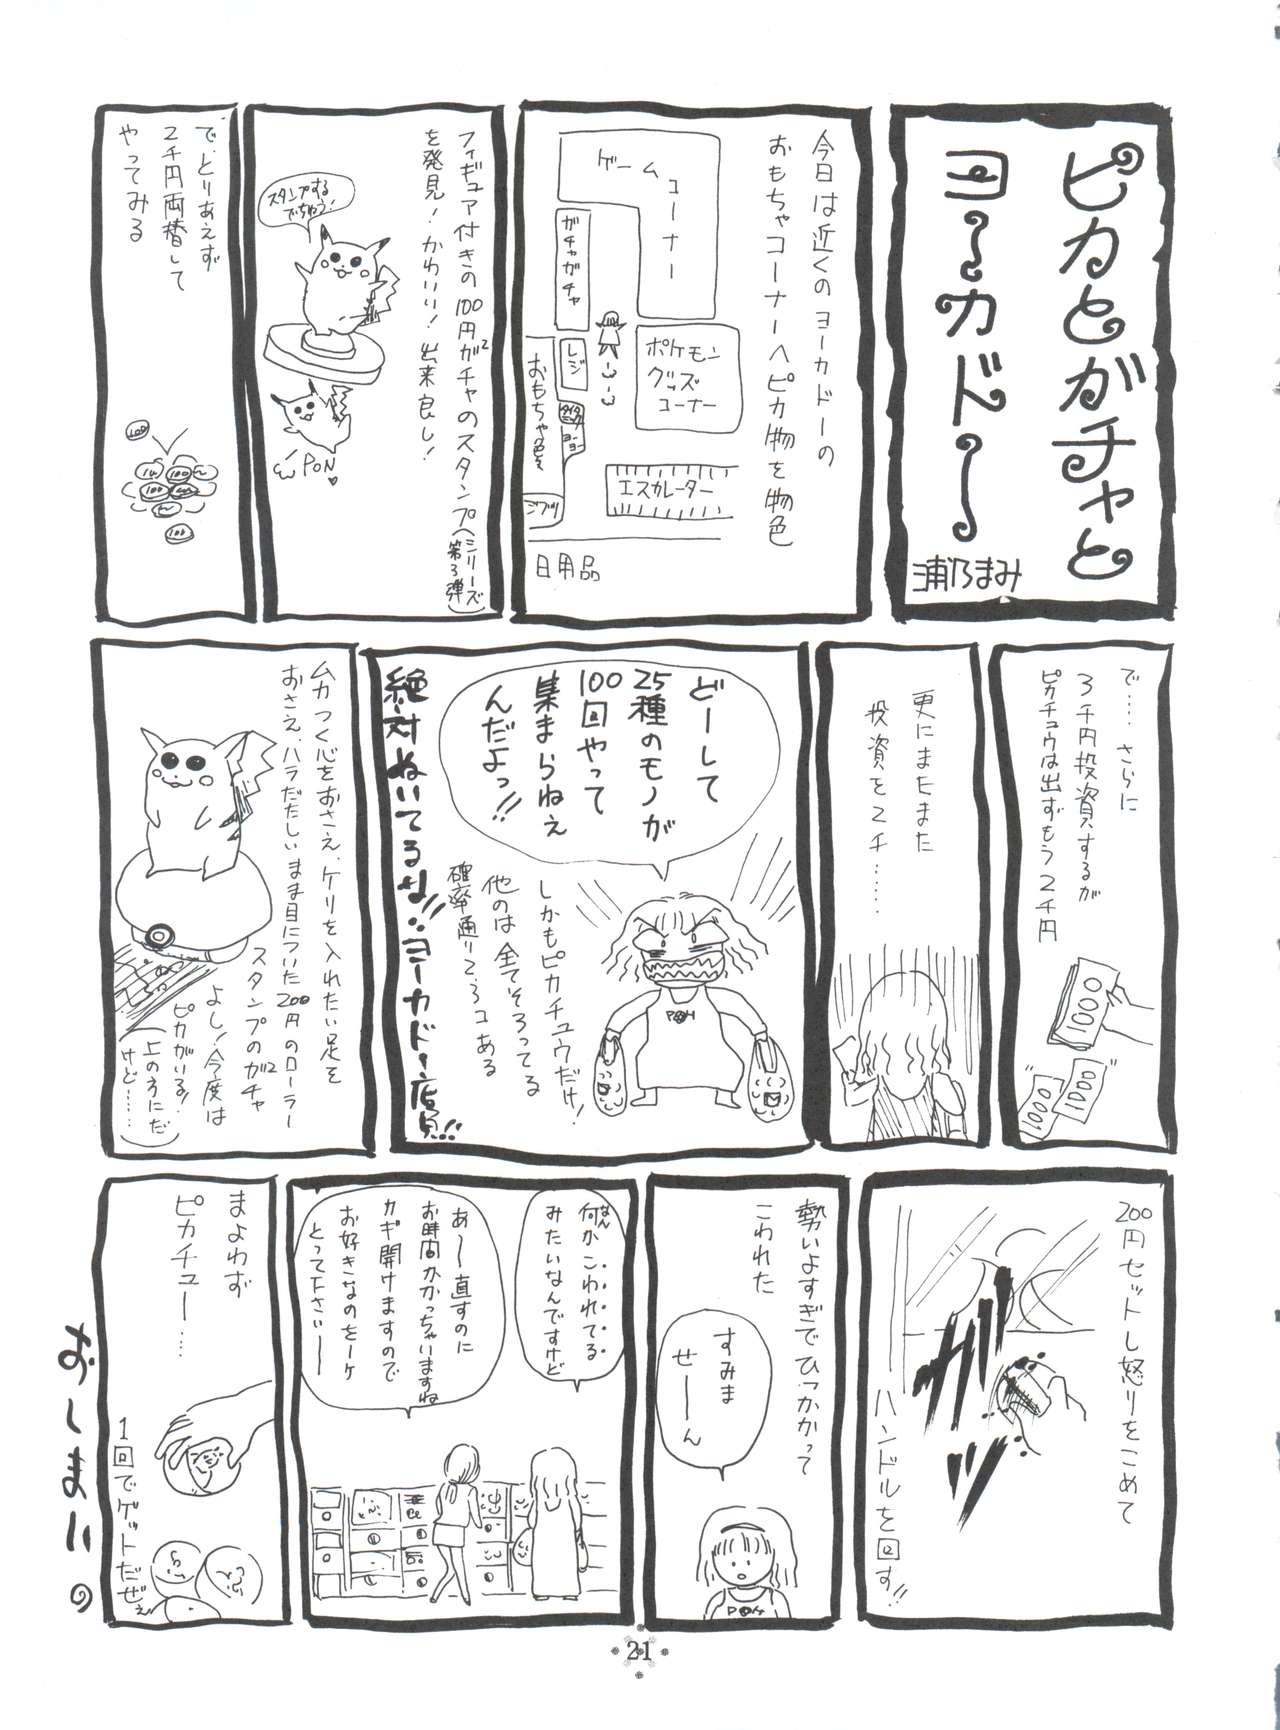 ピカとガチャと
ヨーカドー
浦乃まみ
今日は近くのヨーカドーの
おもちゃコーナーへピカ物を物色
ゲームコーナー
ガチャガチャ
レジ
ポケモン
グッズ
コーナー
おもちゃ色々
ヨーヨー
ジブリ
エスカレーター
日用品
フィギュア付きの100円ガチャのスタンプ(シリーズ
第3弾)
を発見!かわいい!出来良し!
スタンプする
でちゅう!
PON
で、とりあえず
2千円両替して
やってみる
100
100
100
100
で……さらに
3千円投資するが
ピカチュウは出ずもう2千円
1000
1000
1000
更にまたまた
投資を2千……
どーして
25種のモノが
100回やって
集まらねぇ
んだよっ!!
しかもピカチュウだけ!
他のは全てそろってる
確率通り2、3コある
絶対ぬいてるな!!ヨーカドー店員!!
ムカつく心をおさえ、ケリを入れたい足を
おさえ、ハラだたしいまま目についた200円のローラー
スタンプのガチャ
よし!今度は
ピカがいる!
(上の方にだ
けど……)
200円セットし怒りをこめて
ハンドルを回す!!
ガガッ
勢いよすぎでひっかかって
こわれた
すみま
せーん
何かこわれてる
なん
みたいなんですけど
あー直すのに
お時間かかっちゃいますね
カギ開けますので
お好きなのをーケ
とって下さいー
まよわず
ピカチュー……
1回でゲットだぜぇ
おしまい
21